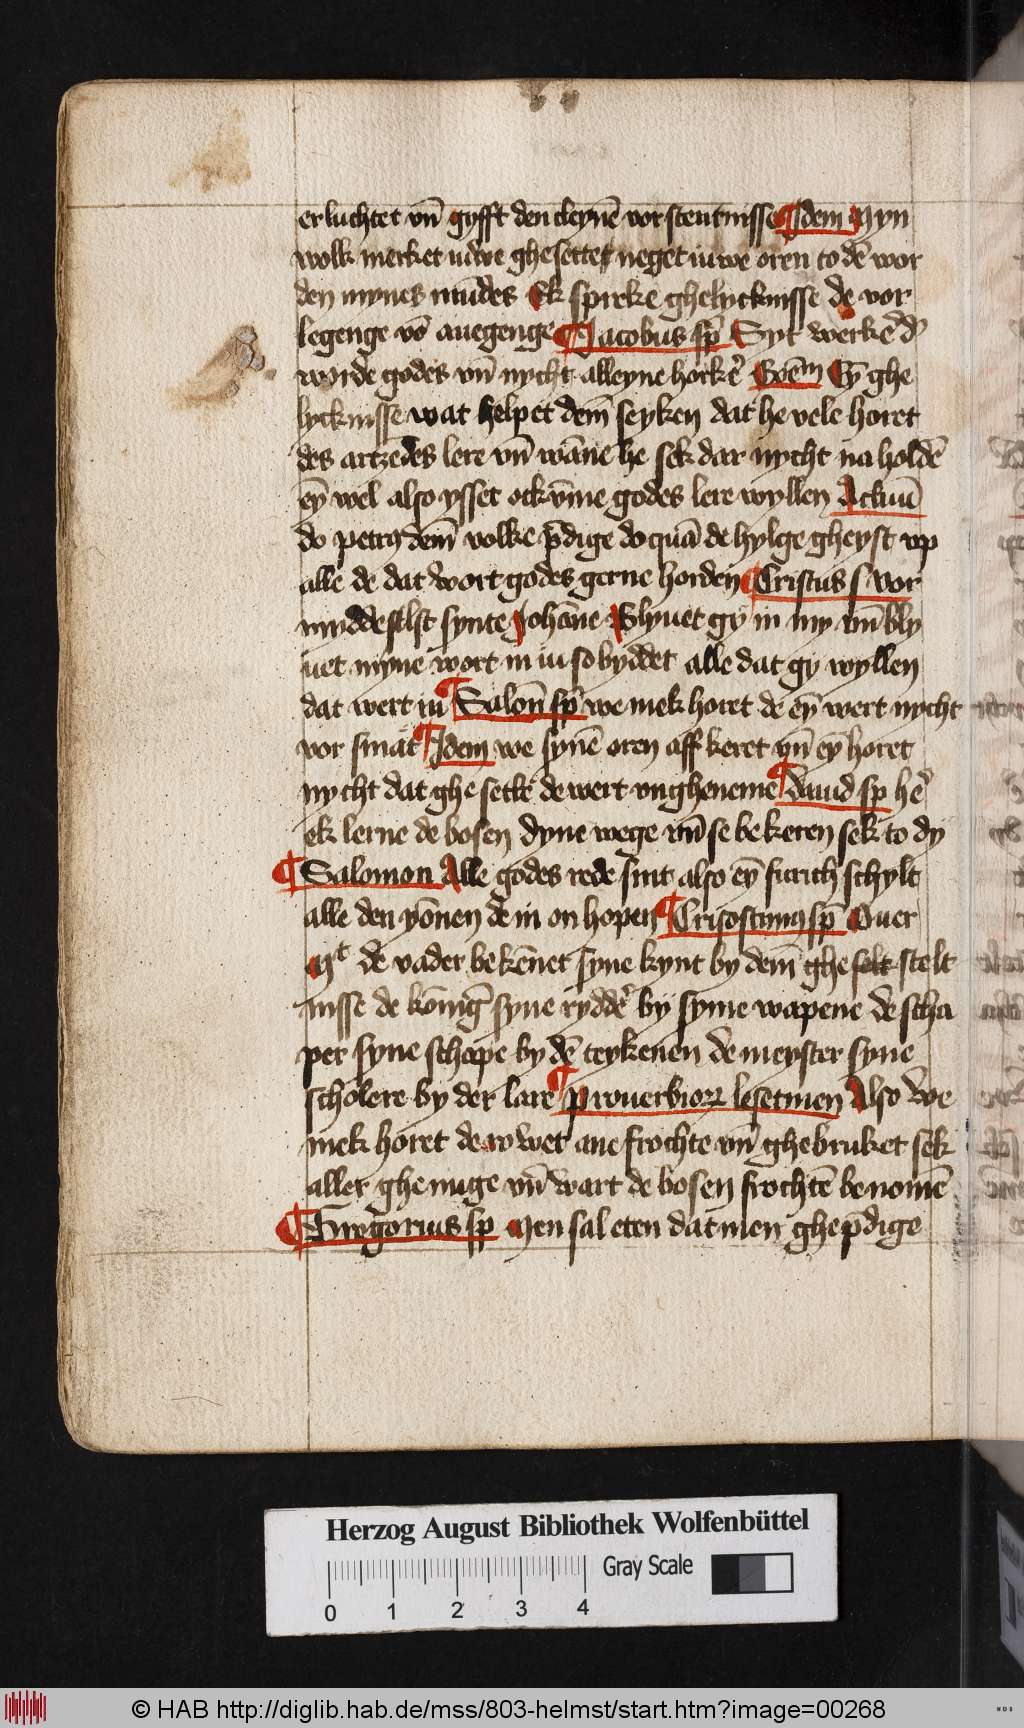 erluchtet vn̄ gyfft den cleynē vorstentnisse ¶ Jdem Myn
volk merket uwe ghesettet neget iuwe oren to dē wor
den mynes mūdes Ek spreke ghelycknisse de vor
legenge vō anegenge ¶ Jacobus sp̄ Syt werkē d
worde godes vn̄ nycht alleyne horkē Ey̅ ghe
lycknisse wat helpet dem̄ seyken dat he vele horet
des artzedes lere vn̄ wāne he sek dar nycht na holdē
ey̅ wel also ysset ock vm̄e godes lere wyllen Actuū
do petrus dem̄ volke p̄dige do quā de hylge gheyst vp
alle de dat wort godes gerne horden ¶ Cristus s vor
myddelst synte Johāne Blyuet gy in my vn̄ bly
uet myne wort in iu so byddet alle dat gy wyllen
dat wert iu ¶ Salon̄ sp̄ we mek horet de ey̅ wert nycht
vor smāt ¶ Jdem we synē oren aff keret vn̄ ey̅ horet
nycht dat ghe sette de wert vngheneme ¶ dauid sp he
ek lerne de bosen dyne wege vn̄ se bekeren sek to dy
¶ Salomon Alle godes rede sint also ey̅ furich schylt
alle den yōnen de in on hopen ¶ Crisostimus sp̄ Ouer
mt de vader bekēnet syne kynt by dem̄ ghe selt stelt
nisse de kōnig syne ryddē by syme wapene de scha
per syne schape by dē teykenen de meyster syne
scholere by der lare ¶ Prouerbiorum lesetmen Also we
mek horet de rowet ane frochte vn̄ ghebruket sek
aller ghenuge vn̄ wart de bosen frochtē benomē
¶ Gregorius sp Men sal eten dat men ghep̄dige
Herzog August Bibliothek Wolfenbüttel
Gray Scale
0 1 2 3 4
© HAB http://diglib.hab.de/mss/803-helmst/start.htm?image=00268